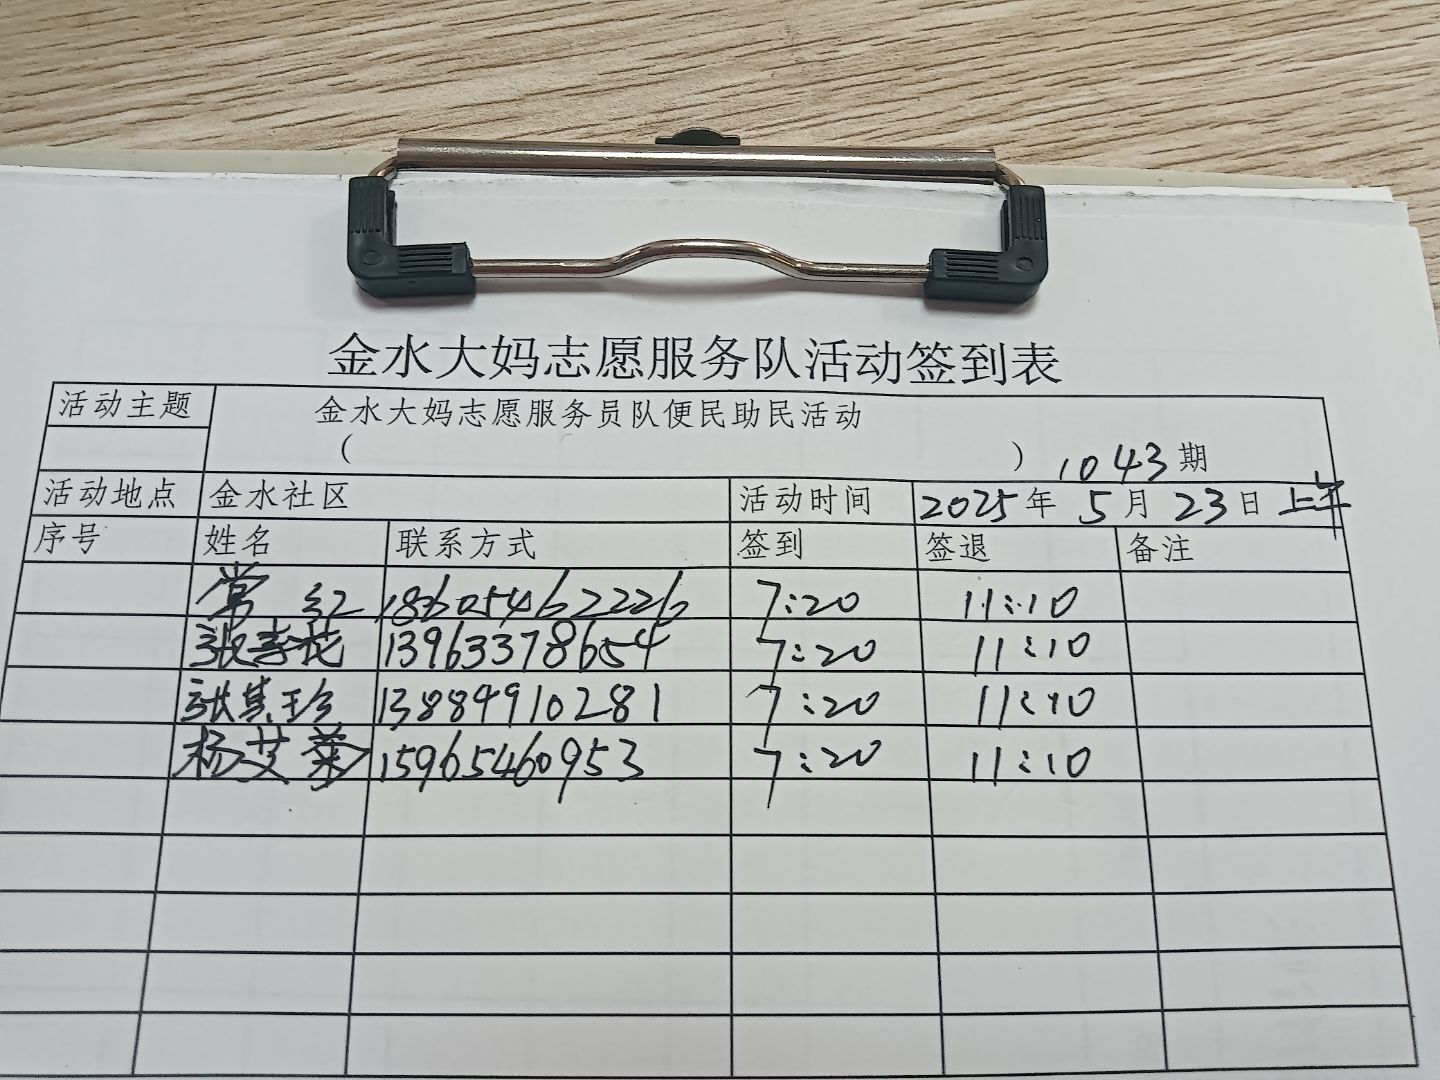 金水大妈志愿服务队活动签到表
活动主题 金水大妈志愿服务员队便民助民活动
( ) 1043期
活动地点 金水社区 活动时间 2025年 5月 23日 上午
序号 姓名 联系方式 签到 签退 备注
常红 18605462226 7:20 11:10
张春花 13963378654 7:20 11:10
张其珍 13884910281 7:20 11:10
杨艾莱 15965460953 7:20 11:10